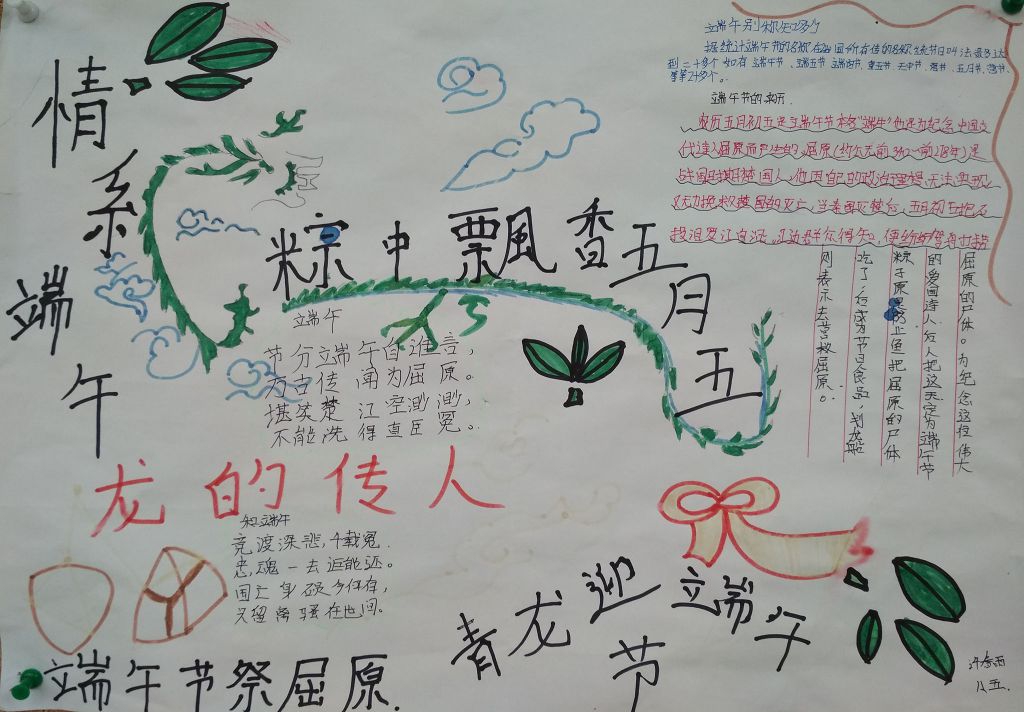 情系端午
粽中飘香五月五
端午别称知多少
据统计端午节的名称在我国所有传的名称统节日叫法最多达
到二十多个 如有 端午节、端五节 端阳节、重五节 天中节、
、五月节、
等等2十多个。
端午节的来历.
农历五月初五是端午节
代诗人屈原而产生的,屈原(约公元前340~前278年)是
战国时期楚国人,他因自己的政治理想无法实现
无力挽救楚国的灭亡,当秦国灭楚后,五月初五抱石
投汨罗江自沉,江边群众得知,便纷纷驾舟打捞
屈原的尸体。为纪念这位伟大
的爱国诗人,后人把这天定为端午节
粽子原是防止鱼把屈原的尸体
吃了,后成为节日食品,划龙船
则表示去营救屈原。
端午
节分端午自谁言,
万古传闻为屈原。
堪笑楚江空渺渺,
不能洗得直臣冤。
龙的传人
和端午
竞渡深悲千载冤.
忠魂一去讵能还。
国亡身殒今何存,
只留离骚在世间。
青龙迎端午节
端午节祭屈原.
八五.